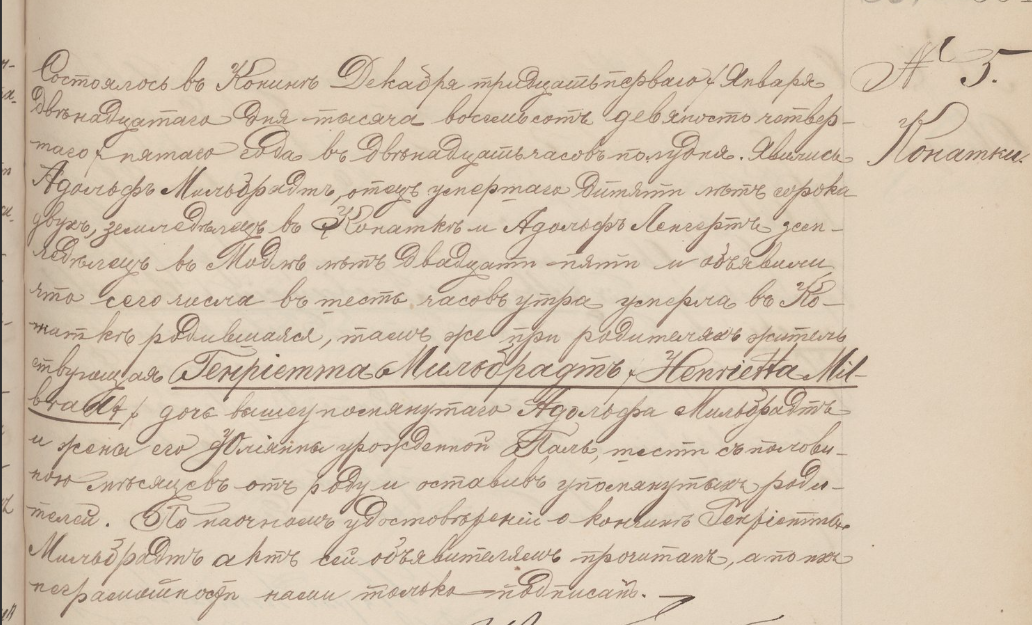 № 5.
Конатки.
Состоялось въ Конинѣ Декабря тридцать перваго / Января
двѣнадцатаго дня тысяча восемьсотъ девяносто четвер-
таго / пятаго года въ двѣнадцать часовъ полудня. Явились
Адольфъ Мильбрадтъ, отецъ умершаго дитяти лѣтъ сорока
двухъ, земледѣлецъ въ Конаткѣ и Адольфъ земле-
дѣлецъ въ лѣтъ двадцати пяти и объявили
что сего числа въ шесть часовъ утра умерла въ Ко-
наткѣ родившаяся, тамъ же при родителяхъ житель
ствующая Генріетта Мильбрадтъ / Henrietta Mil-
bradt / дочь вышеупомянутаго Адольфа Мильбрадтъ
и жены его Юліанны урожденной Паль, шести съ полови-
ною мѣсяцевъ отъ роду и оставивъ упомянутыхъ роди-
телей. По наочномъ удостовѣреніи о кончинѣ Генріетты
Мильбрадтъ актъ сей объявителямъ прочитанъ, а по ихъ
неграмотности нами только подписанъ.